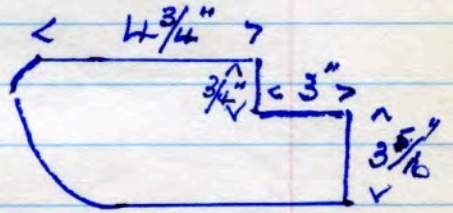 < 4 3/4" >
3/4" < 3" >
3 5/16"